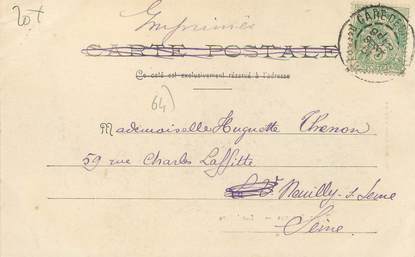 20+
Imprimés
GARE DE
CARTE POSTALE
Ce côté est exclusivement réservé à l'adresse
64)
Mademoiselle Huguette Thenon
59 rue Charles Laffitte
Neuilly-s/ Seine
Seine.